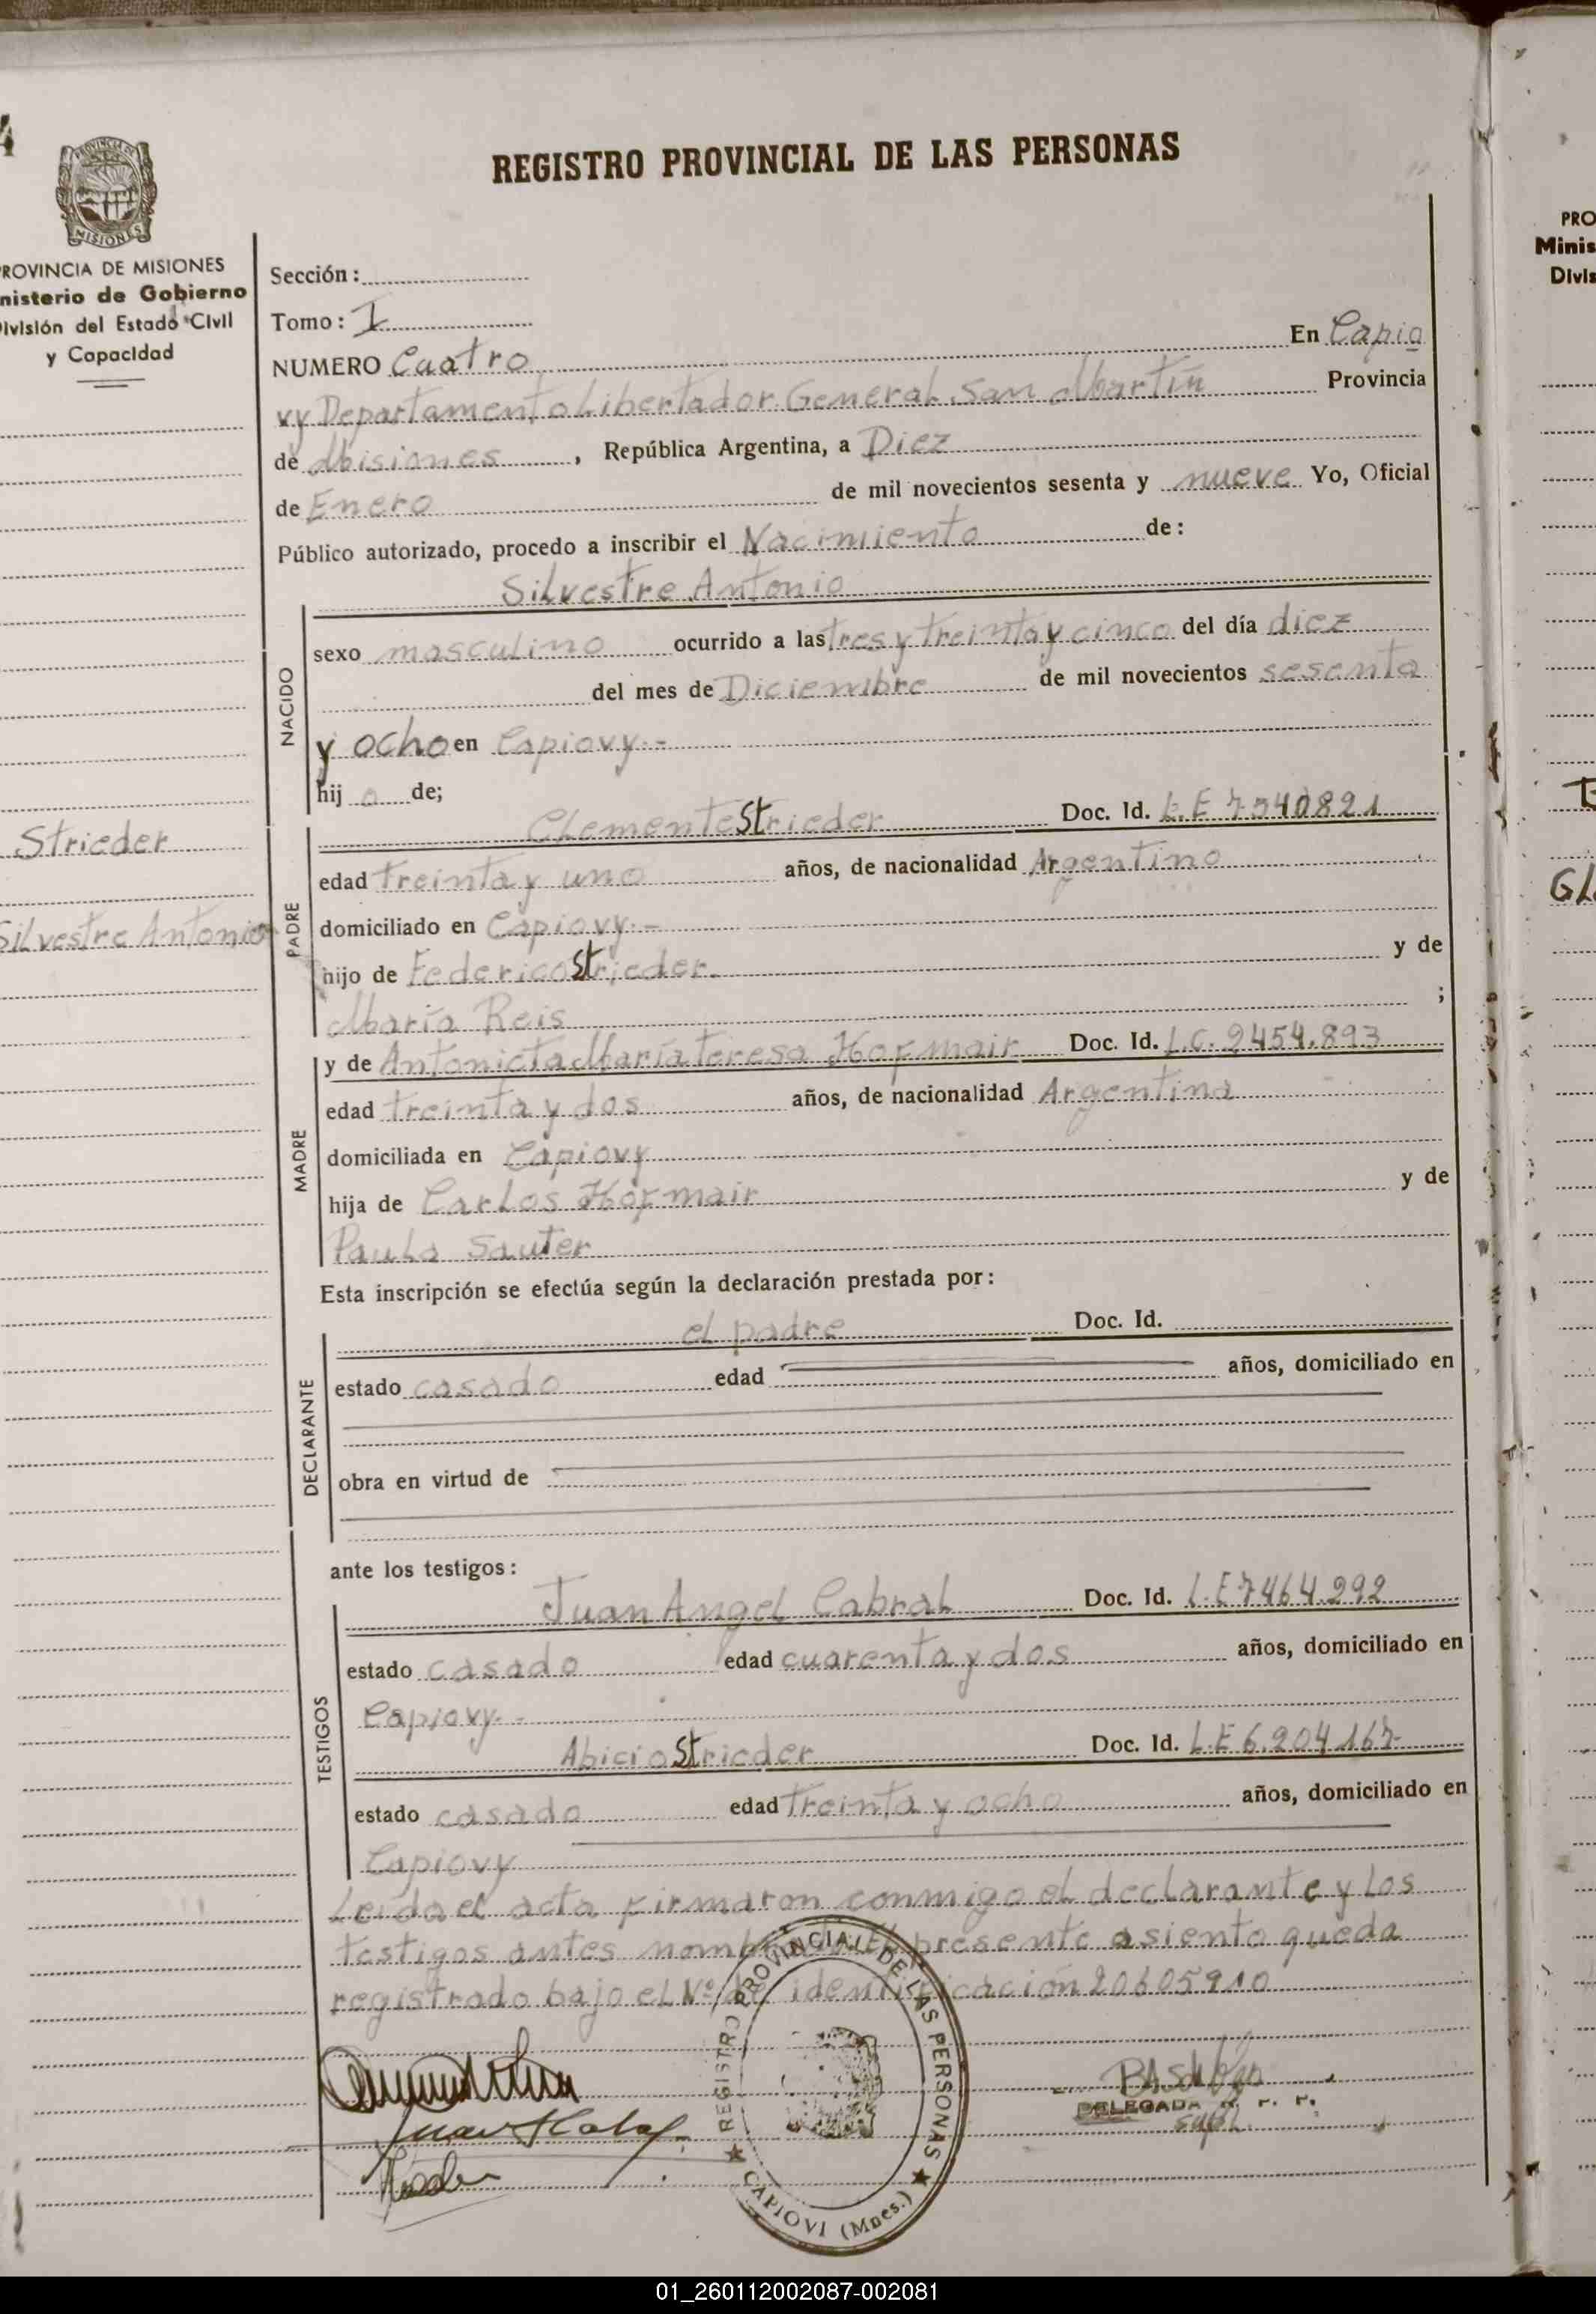 4
PROVINCIA DE
MISIONES
ROVINCIA DE MISIONES
nisterio de Gobierno
ivisión del Estado Civil
y Capacidad
Strieder
Silvestre Antonio
REGISTRO PROVINCIAL DE LAS PERSONAS
Sección:
Tomo: I
NUMERO Cuatro En Capio
vy Departamento Libertador General San Martín Provincia
de Misiones, República Argentina, a Diez
de Enero de mil novecientos sesenta y nueve Yo, Oficial
Público autorizado, procedo a inscribir el Nacimiento de:
Silvestre Antonio
NACIDO
sexo masculino ocurrido a las tres y treinta y cinco del día diez
del mes de Diciembre de mil novecientos sesenta
y ocho en Capiovy.-
hij o de;
PADRE
Clemente Strieder Doc. Id. L.E 7540821
edad treinta y uno años, de nacionalidad Argentino
domiciliado en Capiovy.-
hijo de Federico Strieder. y de
María Reis ;
MADRE
y de Antonieta María Teresa Hofmair Doc. Id. L.C. 2454.893
edad treinta y dos años, de nacionalidad Argentina
domiciliada en Capiovy
hija de Carlos Hofmair y de
Paula Sauter
Esta inscripción se efectúa según la declaración prestada por:
DECLARANTE
el padre Doc. Id.
estado casado edad años, domiciliado en
obra en virtud de
ante los testigos:
TESTIGOS
Juan Angel Cabral Doc. Id. L.E 7464.292
estado casado edad cuarenta y dos años, domiciliado en
Capiovy.-
Abicio Strieder Doc. Id. L.E 6.204.167
estado casado edad treinta y ocho años, domiciliado en
Capiovy
Leída el acta firmaron conmigo el declarante y los
testigos antes presente asiento queda
registrado bajo el Nº de identificación 20605910
REGISTRO PROVINCIAL DE LAS PERSONAS
CAPIOVI (Mnes.)
DELEGADA R. P. P.
supl.
PRO
Minis
Divis
GL
01_260112002087-002081